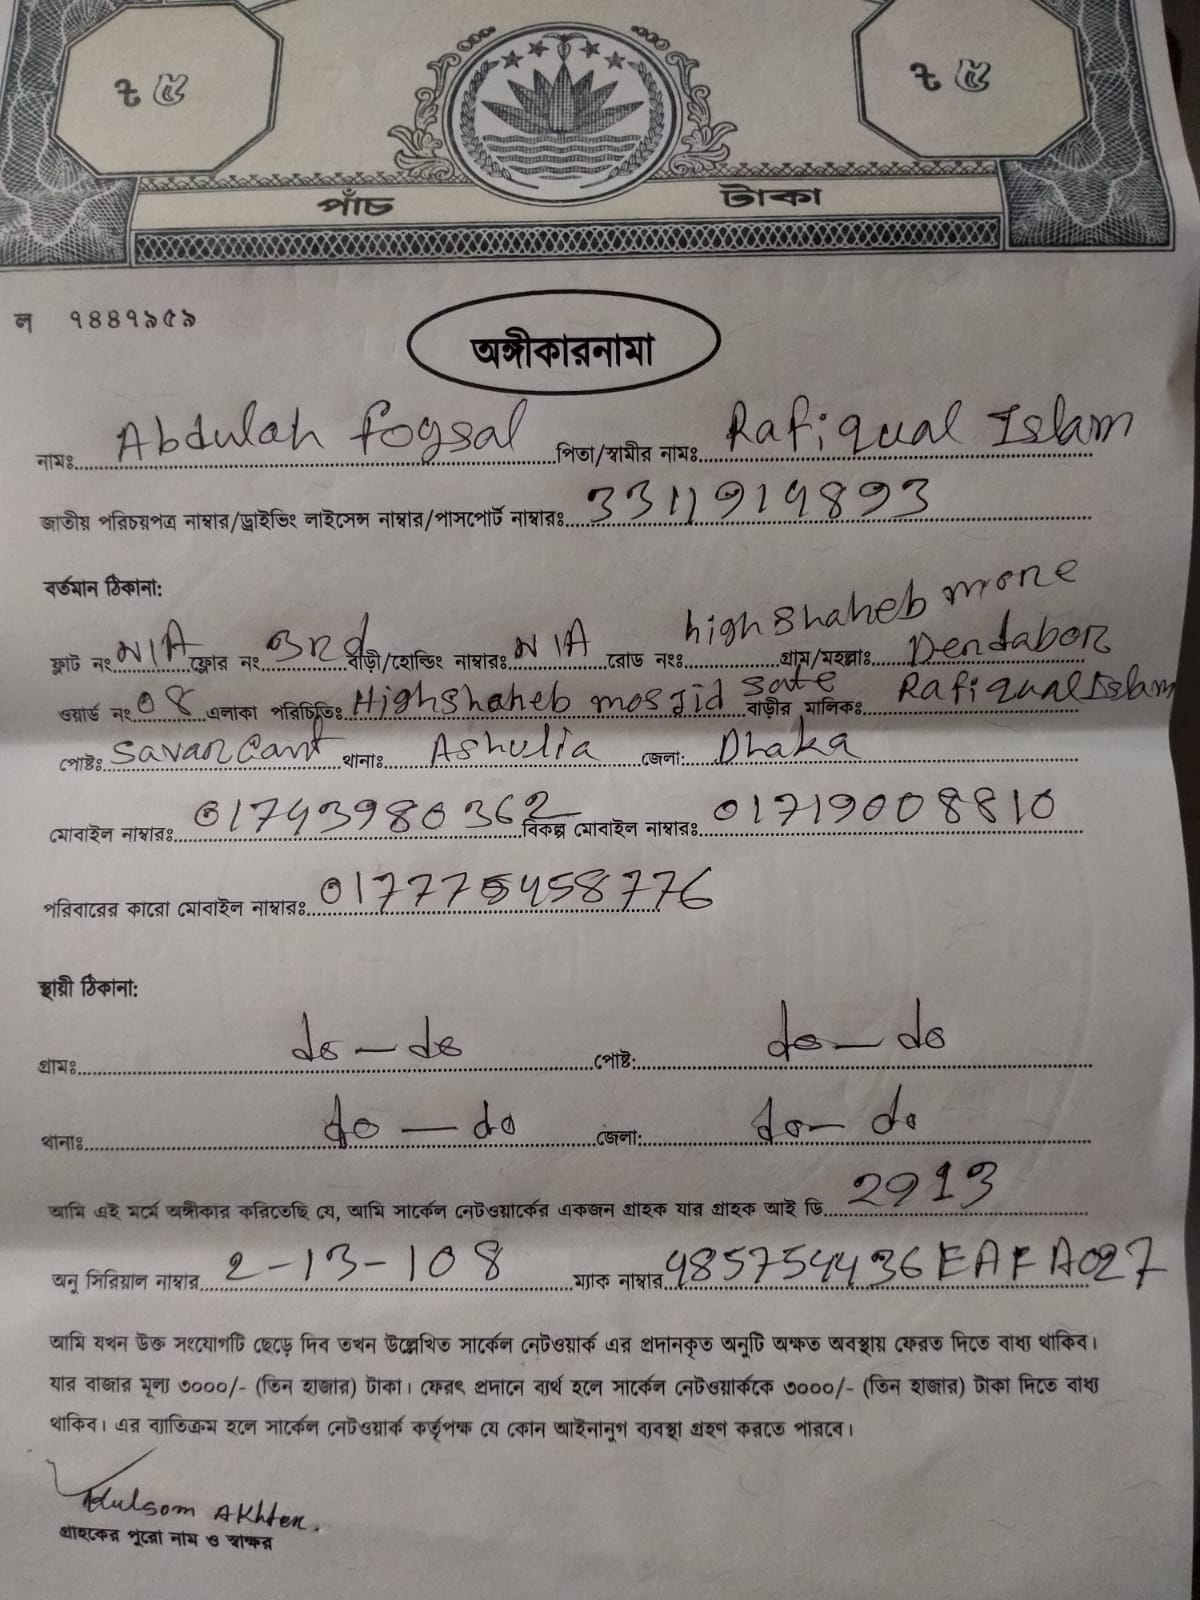 ৳ ৫ ৳ ৫
পাঁচ টাকা
ল ৭৪৪৭৯৫৯
অঙ্গীকারনামা
নামঃ Abdulah foysal পিতা/স্বামীর নামঃ Rafiqual Islam
জাতীয় পরিচয়পত্র নাম্বার/ড্রাইভিং লাইসেন্স নাম্বার/পাসপোর্ট নাম্বারঃ
বর্তমান ঠিকানা:
ফ্লাট নং N/A ফ্লোর নং 3rd বাড়ী/হোল্ডিং নাম্বারঃ N/A রোড নংঃ highshaheb more গ্রাম/মহল্লাঃ Dendabor
ওয়ার্ড নং 08 এলাকা পরিচিতিঃ Highshaheb mosjid sate বাড়ীর মালিকঃ Rafiqual Islam
পোষ্টঃ Savar Cant থানাঃ Ashulia জেলা: Dhaka
মোবাইল নাম্বারঃ 01743980362 বিকল্প মোবাইল নাম্বারঃ 01719008810
পরিবারের কারো মোবাইল নাম্বারঃ
স্থায়ী ঠিকানা:
গ্রামঃ do — do পোষ্ট: do — do
থানাঃ do — do জেলা: do — do
আমি এই মর্মে অঙ্গীকার করিতেছি যে, আমি সার্কেল নেটওয়ার্কের একজন গ্রাহক যার গ্রাহক আই ডি 2913
অনু সিরিয়াল নাম্বার 2-13-108 ম্যাক নাম্বার
আমি যখন উক্ত সংযোগটি ছেড়ে দিব তখন উল্লেখিত সার্কেল নেটওয়ার্ক এর প্রদানকৃত অনুটি অক্ষত অবস্থায় ফেরত দিতে বাধ্য থাকিব।
যার বাজার মূল্য ৩০০০/- (তিন হাজার) টাকা। ফেরৎ প্রদানে ব্যর্থ হলে সার্কেল নেটওয়ার্ককে ৩০০০/- (তিন হাজার) টাকা দিতে বাধ্য
থাকিব। এর ব্যাতিক্রম হলে সার্কেল নেটওয়ার্ক কর্তৃপক্ষ যে কোন আইনানুগ ব্যবস্থা গ্রহণ করতে পারবে।
Akhter.
গ্রাহকের পুরো নাম ও স্বাক্ষর